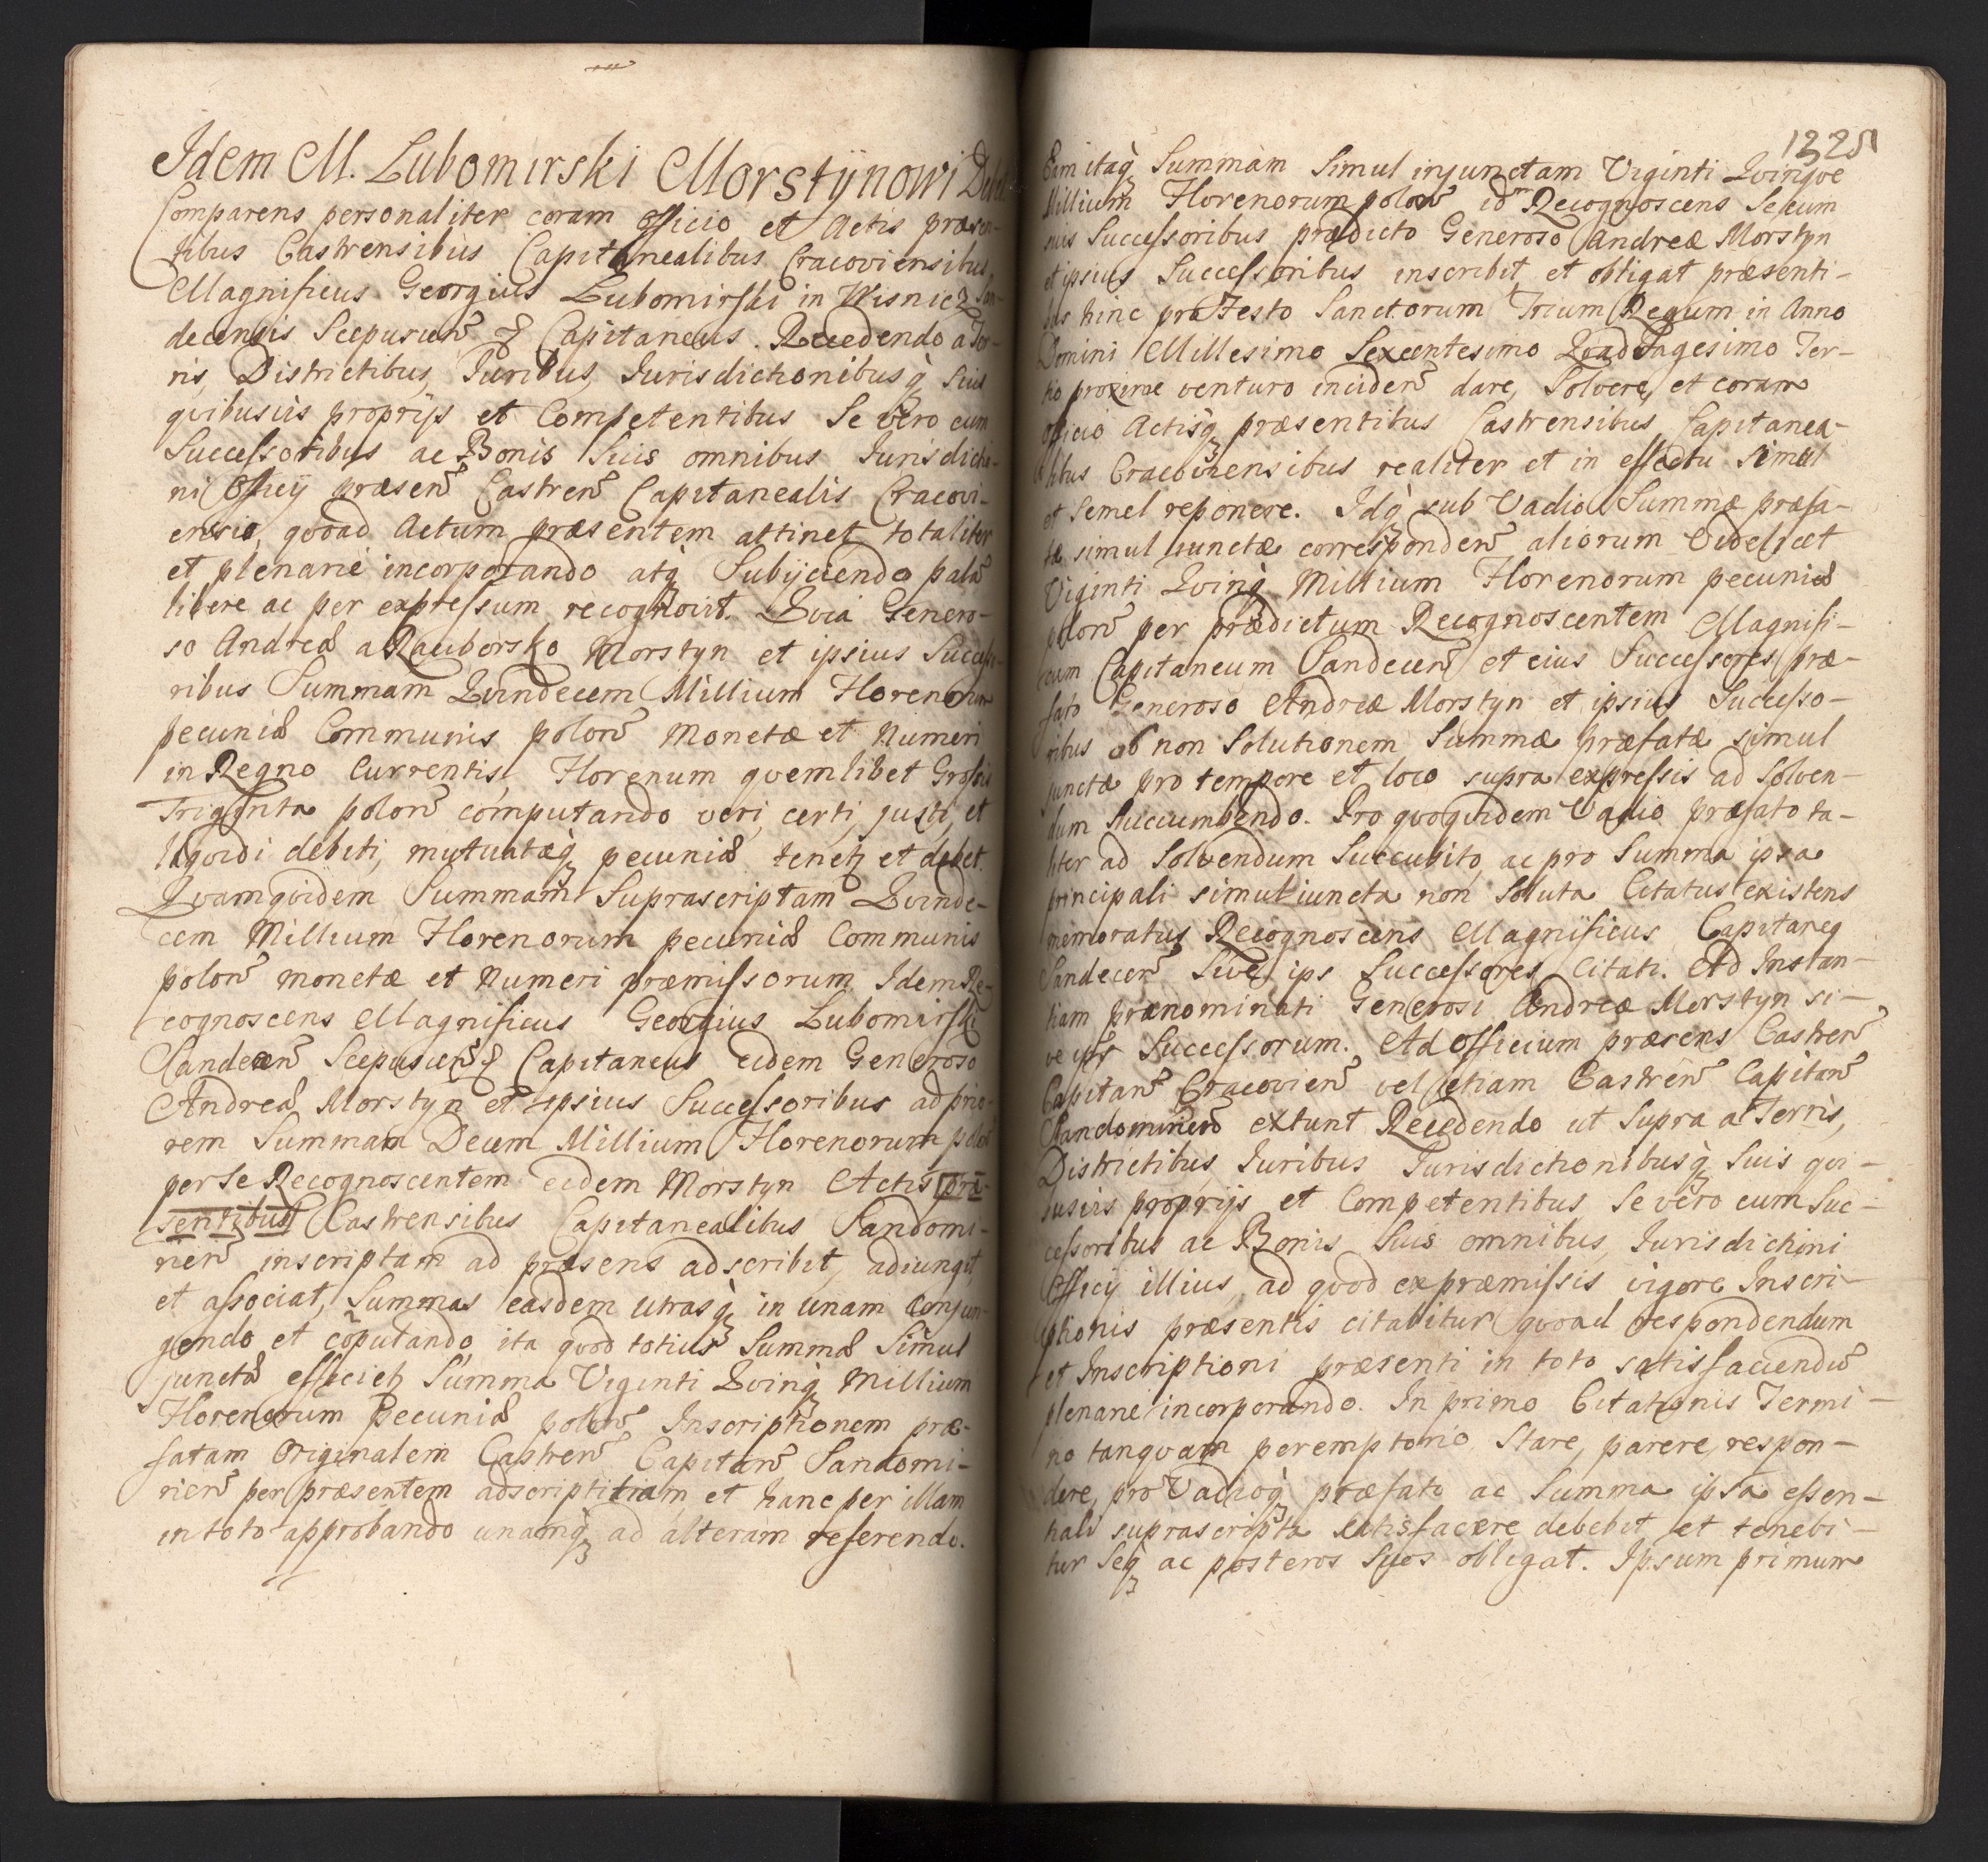 Idem M. Lubomirski Morstÿnowi
Comparens personaliter coram officio et Actis præsen-
tibus Castrensibus Capitanealibus Cracoviensibus,
Magnificus Georgius Lubomirski in Wisnicz San-
decensis Scepusien̄ & Capitaneus. Recedendo a Ter-
ris, Districtibus, Juribus, Jurisdictionibusq̀ Suis
quibusuis proprijs et Competentibus Se vero cum
Successoribus ac Bonis Suis omnibus Jurisdictio-
ni Officij præsen̄ Castren̄ Capitanealis Cracovi-
ensis, quoad Actum præsentem attinet totaliter
et plenarie incorporando atq̀ Subijciendo palā
libere ac per expressum recognovit. Quia Genero-
so Andreæ a Raciborsko Morstyn et ipsius Successo-
ribus Summam Quindecem Millium Florenorum
pecuniæ Communis polon̄ Monetæ et Numeri
in Regno Currentis, Florenum quemlibet Grossis
Triginta polon̄ computando veri, certi, justi, et
liquidi debiti, mutuatæq̀ pecuniæ tenetꝫ et debet.
Quamquidem Summam Suprascriptam Quinde-
cem Millium Florenorum pecuniæ Communis
polon̄ monetæ et Numeri præmissorum Idem Re-
cognoscens Magnificus Georgius Lubomirski
Sandecen̄ Scepusien̄ & Capitaneus eidem Generoso
Andreæ Morstyn et ipsius Successoribus ad prio-
rem Summam Decem Millium Florenorum polon̄
per Se Recognoscentem eidem Morstyn Actis præ-
sentibus Castrensibus Capitanealibus Sandomi-
rien̄ inscriptam ad præsens adscribit, adiungit,
et associat, Summas easdem utrasq̀ in unam Conjun-
gendo et cōputando ita quod totius Summæ Simul
junctæ efficietꝫ Summa Viginti Quinq̀ Millium
Florenorum Pecuniæ polon̄ Inscriptionem præ-
fatam Originalem Castren̄ Capitan̄ Sandomi-
rien̄ per præsentem adscriptitiam et hanc per illam
in toto approbando unamq̀ ad alteram referendo.
1325
Eam itaq̀ Summam Simul injunctam Viginti Quinque
Millium Florenorum polon̄ idm̄ Recognoscens Secum
suis Successoribus prædicto Generoso Andreæ Morstyn
et ipsius Successoribus inscribit et obligat præsenti-
bus hinc pro Festo Sanctorum Trium Regum in Anno
Domini Millesimo Sexcentesimo Quadragesimo Ter-
tio proxime venturo inciden̄ dare, Solvere, et coram
Officio Actisq̀ præsentibus Castrensibus Capitanea-
libus Cracoviensibus realiter et in effectu Simul
et Semel reponere. Idq̀ sub Vadio Summæ præfa-
tæ simul iunctæ corresponden̄ aliorum Videlicet
Viginti Quinq̀ Millium Florenorum pecuniæ
polon̄ per prædictum Recognoscentem Magnifi-
cum Capitaneum Sandecen̄ et eius Successores præ-
fato Generoso Andreæ Morstyn et ipsius Successo-
ribus ob non Solutionem Summæ præfatæ simul
junctæ pro tempore et loco supra expressis ad Solven-
dum Succumbendo. Pro quoquidem Vadio præfato ta-
liter ad Solvendum Succubito, ac pro Summa ipsa
principali simul iuncta non Soluta Citatus existens
memoratus Recognoscens Magnificus Capitaneq
Sandecen̄ Sive ips Successores Citati. Ad Instan-
tiam prænominati Generosi Andreæ Morstyn si-
ve ips Successorum. Ad Officium præsens Castren̄
Capitan̄ Cracovien̄ vel etiam Castren̄ Capitan̄
Sandomirien̄ extunt Recedendo ut Supra a Terris,
Districtibus, Juribus Jurisdictionibusq̀ Suis qui-
busuis proprijs et Competentibus Se vero cum Suc-
cessoribus ac Bonis Suis omnibus Jurisdictioni
Officij illius, ad quod ex præmissis vigore Inscri-
ptionis præsentis citabitur quoad respondendum
et Inscriptioni præsenti in toto satisfaciendū
plenarie incorporando. In primo Citationis Termi-
no tanquam peremptorio Stare, parere, respon-
dere, pro Vadioq̀ præfato ac Summa ipsa essen-
tiali suprascripta satisfacere debebit et tenebi-
tur Seq̀ ac posteros Suos obligat. Ipsum primum